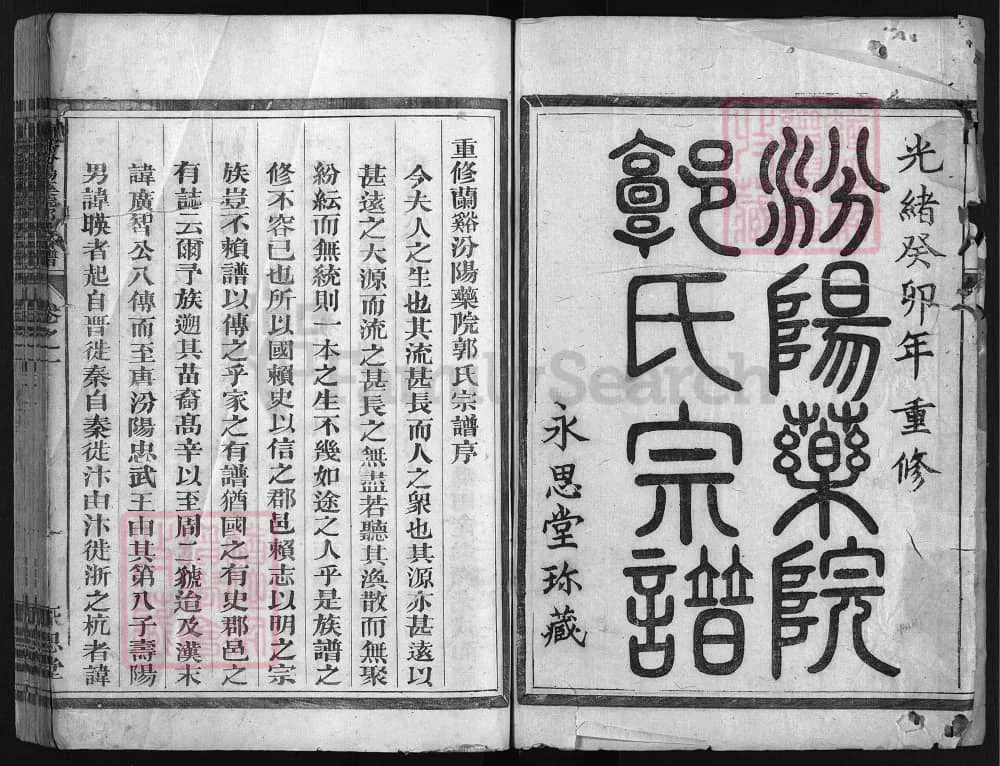 光緒癸卯年重修
汾陽藥院
郭氏宗譜
永思堂珎藏
重修蘭谿汾陽藥院郭氏宗譜序
今夫人之生也其流甚長而人之衆也其源亦甚遠以
甚遠之大源而流之甚長之無盡若聽其渙散而無聚
紛紜而無統則一本之生不幾如途之人乎是族譜之
修不容已也所以國賴史以信之郡邑賴志以明之宗
族豈不賴譜以傳之乎家之有譜猶國之有史郡邑之
有誌云爾予族遡其苗裔髙辛以至周二虢迨及漢末
諱廣智公八傳而至唐汾陽忠武王由其第八子壽陽
男諱暎者起自晋徙秦自秦徙汴由汴徙浙之杭者諱
卷之一
永思堂
FamilySearch